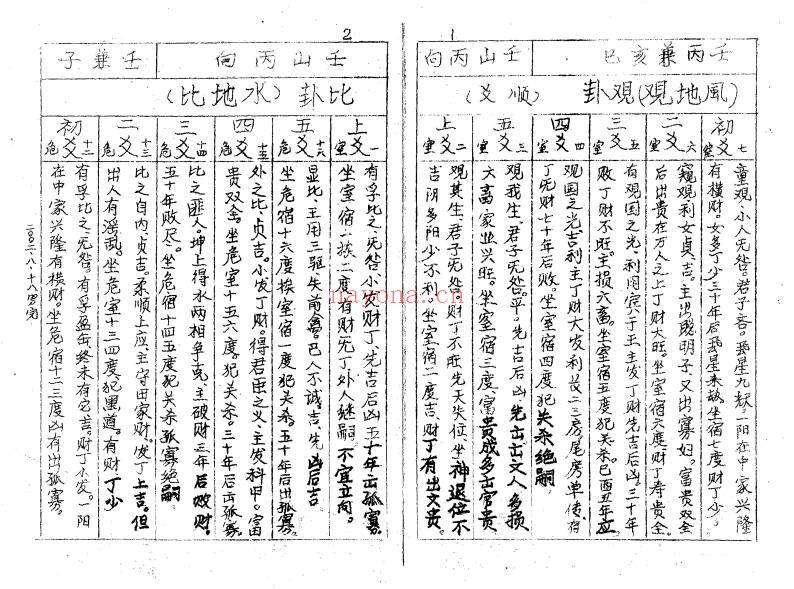 1
壬丙兼亥巳
壬山丙向
(風地觀)觀卦
(順爻)
初爻七室
童观,小人无咎。君子吝。
有横财。女多丁少三十年后
坐室宿七度财丁少。
二爻六室
窥观利女贞,吉。主出聪明子又出寡妇。富贵双全
后出贵在万人之上丁财大旺。坐室宿六度财丁寿贵全
三爻五室
有观国之光,利用宾于王主发丁财先吉后凶三十年
败丁财不旺主损六畜。坐室宿五度犯关杀己酉五年应
四爻四室
观国之光吉利主丁财大发利长二三房尾房单传有
丁无财七十年后败。坐室宿四度犯关杀绝嗣
五爻三室
观我生,君子无咎。平。先吉后凶先出文人多损
六畜家业兴旺。坐室宿三度富贵成多出官贵
上爻二室
观其生君子无咎财丁不旺先天失位坐神退位不
吉阴多阳少不利。坐室宿二度吉财丁有出文贵。
2
壬山丙向
壬兼子
比卦(水地比)
上爻一室
有孚比之,无咎,小发财丁先吉后凶五十年出孤寡。
坐室宿一族二度有财无丁外人继嗣不宜立向。
五爻十六危
显比,王用三驱失前禽。己人不诚,吉先凶后吉
坐危宿十六度挨室宿一度犯关杀。五十年后出孤寡。
四爻十五危
外之比,贞吉。小发丁财。得君臣之义,主发科甲。富
贵双全。坐危宿十五六度。犯关杀。三十年后出孤寡。
三爻十四危
比之匪人。坤上得水两相争克,主破财三年后败财。
五十年败尽。坐危宿十四五度犯关杀孤寡绝嗣
二爻十三危
比之自内,贞吉。柔顺上应,主守田家财,发丁上吉。但
出人有淫乱。坐危室十三四度犯黑道。有财丁少
初爻十二危
有孚比之,无咎。有孚盈缶终未有它吉。财丁小发。一阳
在中家兴隆有横财。坐危宿十二三度凶有出孤寡。
二〇〇二.八.十八
nayona.cn